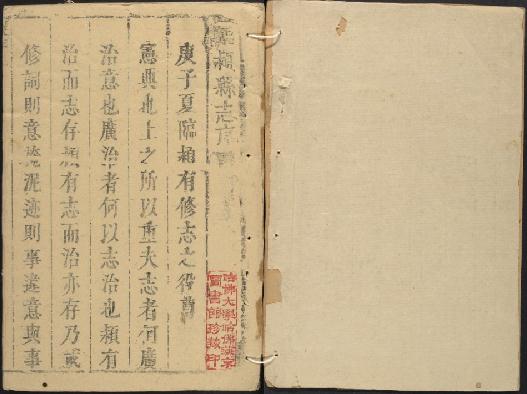 潁縣志序
庚子夏臨潁有修志之役尊
憲典也上之所以重夫志者何廣
治意也廣治者何以志治也潁有
治而志存潁有志而治亦存乃或
修詞則意掩泥迹則事違意與事
哈佛大學哈佛燕京
圖書館珍藏印